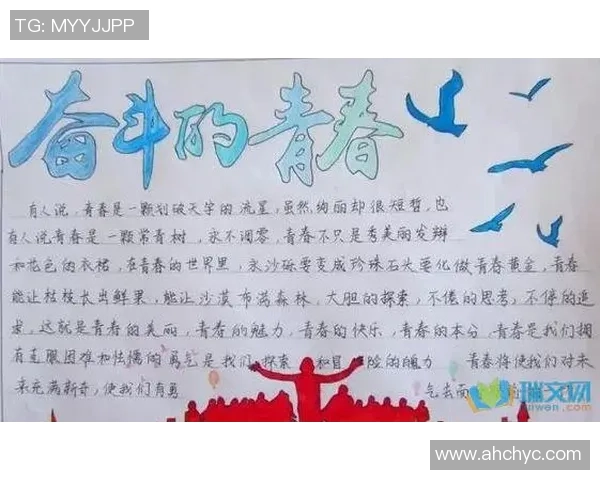 TG: MYYJJPP
奋斗的青春
有人说,青春是一颗划破天宇的流星,虽然绚丽却很短暂,也
有人说青春是一颗常青树,永不凋零,青春不只是秀美的发辫
和花色的衣裙,在青春的世界里,水沙砾要变成珍珠石头要化做青春黄金,青春
能让枯枝长出鲜果,能让沙漠布满森林,大胆的探索,不倦的思考,不停的追
求,这就是青春的美丽,青春的魅力,青春的快乐,青春的本分,青春是我们拥
有克服困难和怯懦的勇气是我们探索和冒险的魄力 青春将使我们对未
来充满新奇,使我们有勇 气去面
瑞文网
ruiwen.com
www.ahchyc.com